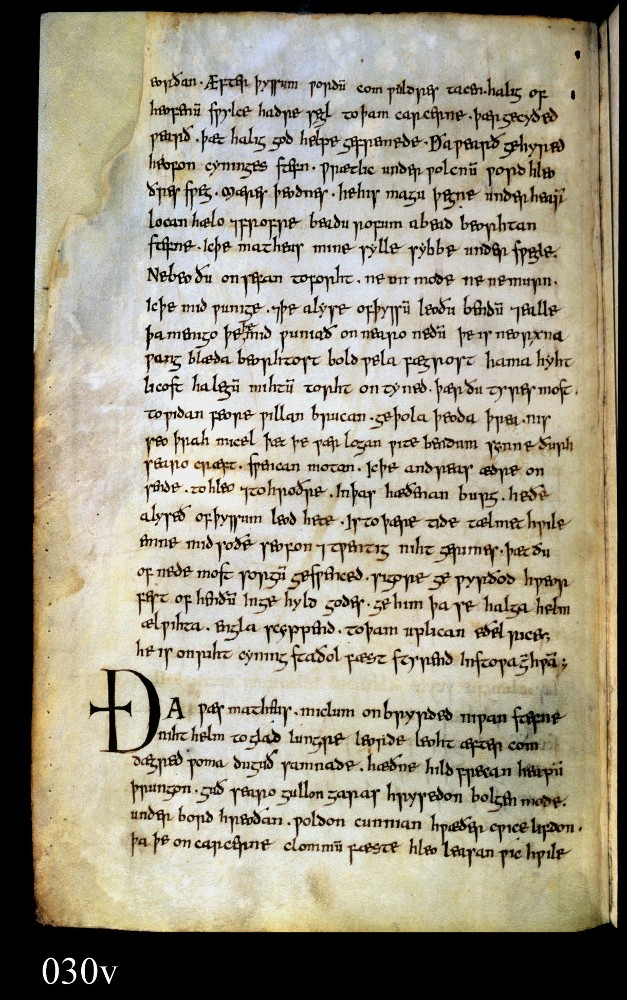 weorðan · Æfter þyssum wordū com wuldres tacen · halig of
heofenū swylce hadre segl to þam carcerne · þær gecyðed
wearð · þæt halig god helpe gefremede · Ða wearð gehyred
heofon cyninges stefn · wrætlic under wolcnū word hleo
ðres sweg · mæres þeodnes · he his magu þegne under hearm
locan hælo ⁊ frofre beadu rofum abead beorhtan
stefne · Ic þe matheus mine sylle sybbe under swegle ·
Ne beo ðu on sefan to forht · ne on mode ne ne murn ·
Ic þe mid wunige · ⁊ þe alyse of þyssū leoðu bendū ⁊ ealle
þa menigo þe þe mid wuniað on nearo nedū þe is neorxna
wang blæda beorhtost bold wela fægrost hama hyht
licost halegū mihtū torht ontyned · þær ðu tyres most ·
to widan feore willan brucan · geþola þeoda þrea · nis
seo þrah micel þæt þe wær logan wite bendum synne ðurh
searo cræft · swencan motan · Ic þe andreas ædre on
sende · to hleo ⁊ to hroðre · In þas hæðenan burg · he ðe
alyseð of þyssum leod hete · Is to þære tide tælmet hwile
emne mid soðe seofon ⁊ twentig niht gerimes · þæt ðu
of nede most sorgū geswenced · sigore gewyrðod hweorf
fest of henðū In gehyld godes · gewim þa se halga helm
ælwihta · engla scyppend · to þam uplican eðel rices
he is on riht cyning staðol fæst styrend In stowa gehwā ;
ÐA wæs matheus · miclum onbryrded niwan stefne
niht helm toglad lungre leorde leoht æfter com
dægred woma duguð samnade · hæðne hild frecan heapū
þrungon · guð searo gullon garas hrysedon bolgen mode ·
under bord hreoðan · woldon cunnian hwæðer cwice lifdon ·
þa þe on carcerne clommū fæste hleo leasan wic hwile